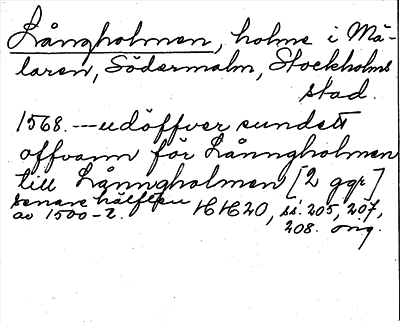 Långholmen, holme i Mä-
laren, Södermalm, Stockholms
stad.
1568. --- udöffver sundett
offvann för Lånngholmen
till Lånngholmen [2 ggr]
senare hälften
av 1500-t. HH20, ss. 205, 207,
208. orig.